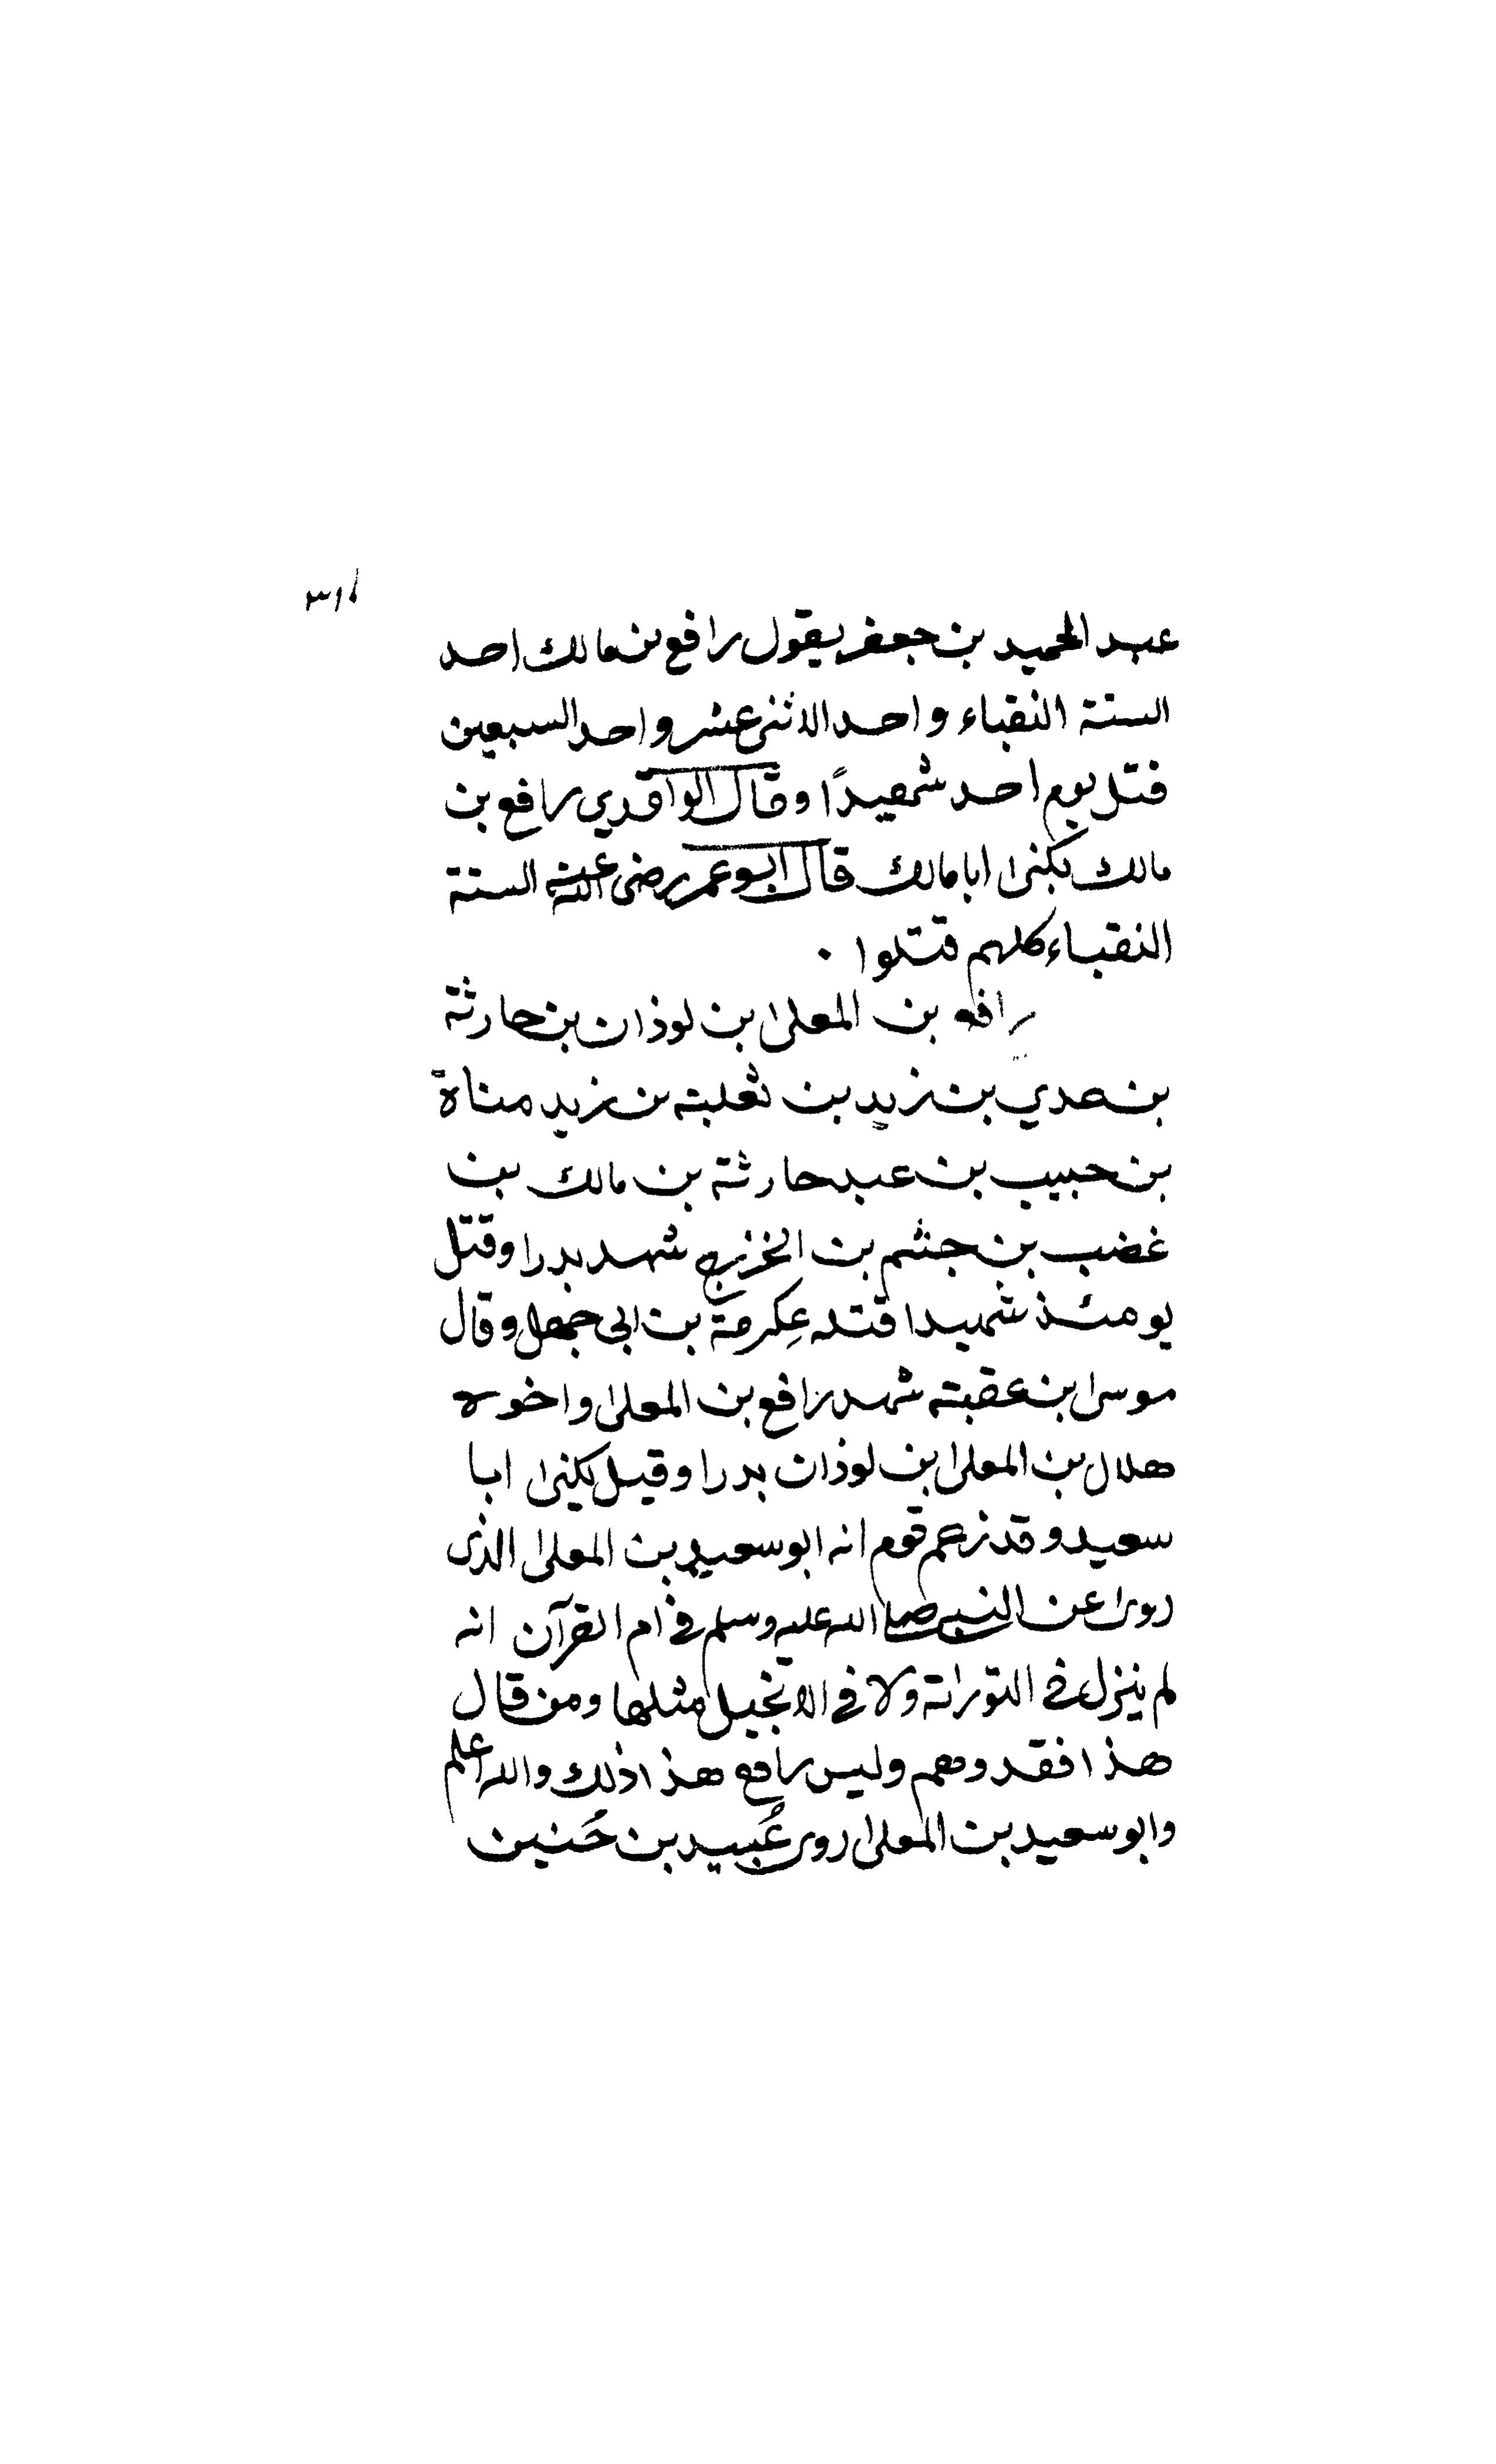 ٣١٠
عبد الحميد بن جعفر يقول رافع بن مالك احد
الستة النقباء واحد الاثنى عشر واحد السبعين
قتل يوم احد شهيدًا وقال الواقدي رافع بن
مالك يكنى ابا مالك قال ابو عمر رضى الله عنه الستة
النقباء كلهم قتلوا .
رافع بن المعلى بن لوذان بن حارثة
بن عدي بن زيد بن ثعلبة بن زيد مناة
بن حبيب بن عبد حارثة بن مالك بن
غضب بن جشم بن الخزرج شهد بدرا وقتل
يومئذ شهيدا قتله عِكرمة بن ابى جهل وقال
موسى ابن عقبة شهد رافع بن المعلى واخوه
هلال بن المعلى بن لوذان بدرا وقيل يكنى ابا
سعيد وقد زعم قوم انه ابو سعيد بن المعلى الذى
روى عن النبي صلى الله عليه وسلم في ام القرآن انه
لم ينزل فى التوراة ولا فى الانجيل مثلها ومن قال
هذا فقد وهم وليس رافع هذا ذلك والله اعلم
وابو سعيد بن المعلى روى عُبيد بن حُنين